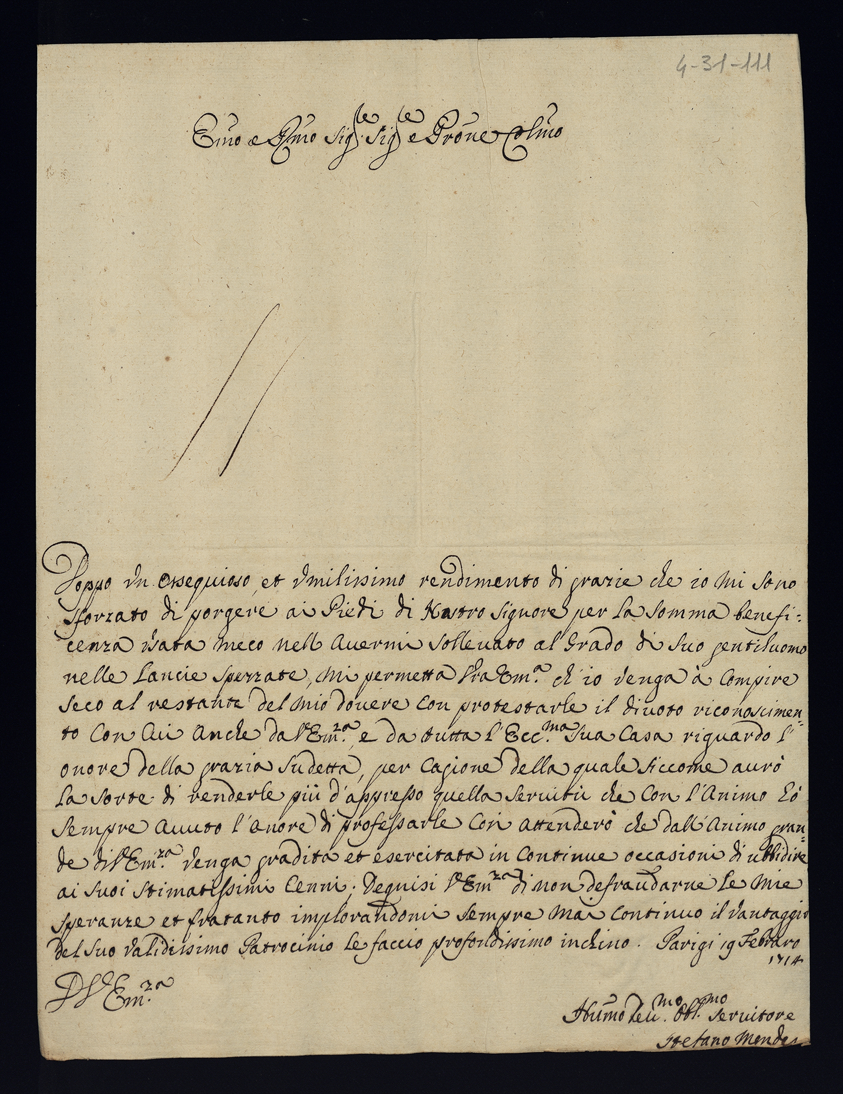 4-31-111
Emo e Rmo Sig.re Sig.re e Prone Colmo
Doppo un ossequioso, et umilissimo rendimento di grazie che io mi sono
sforzato di porgere ai Piedi di Nostro Signore per la somma benefi:
cenza usata meco nell Avermi sollevato al Grado di Suo gentiluomo
nelle Lancie Spezzate, mi permetta Vra Em.a ch'io venga à Compire
seco al restante del mio dovere con protestarle il divoto riconoscimen
to Con Cui Anche da V.Em.za, e da tutta l'Ecc.ma Sua Casa riguardo l'
onore della grazia sudetta, per Cagione della quale siccome avrò
la sorte di renderle più d'appresso quella servitù che Con l'Animo hò
sempre Avuto l'onore di professarle Così attenderò che dall'Animo gran:
de di V.Em.za venga gradita et esercitata in Continue occasioni di ubbidire
ai suoi stimatissimi Cenni; Degnisi V.Em.za di non defraudarne le mie
speranze et fratanto implorandomi sempre mai continuo il vantaggio
del suo validissimo Patrocinio le faccio profondissimo inchino. Parigi 19 Febraro
1714
D V.Em.za
Humo Dev.mo Obl.mo Servitore
Stefano